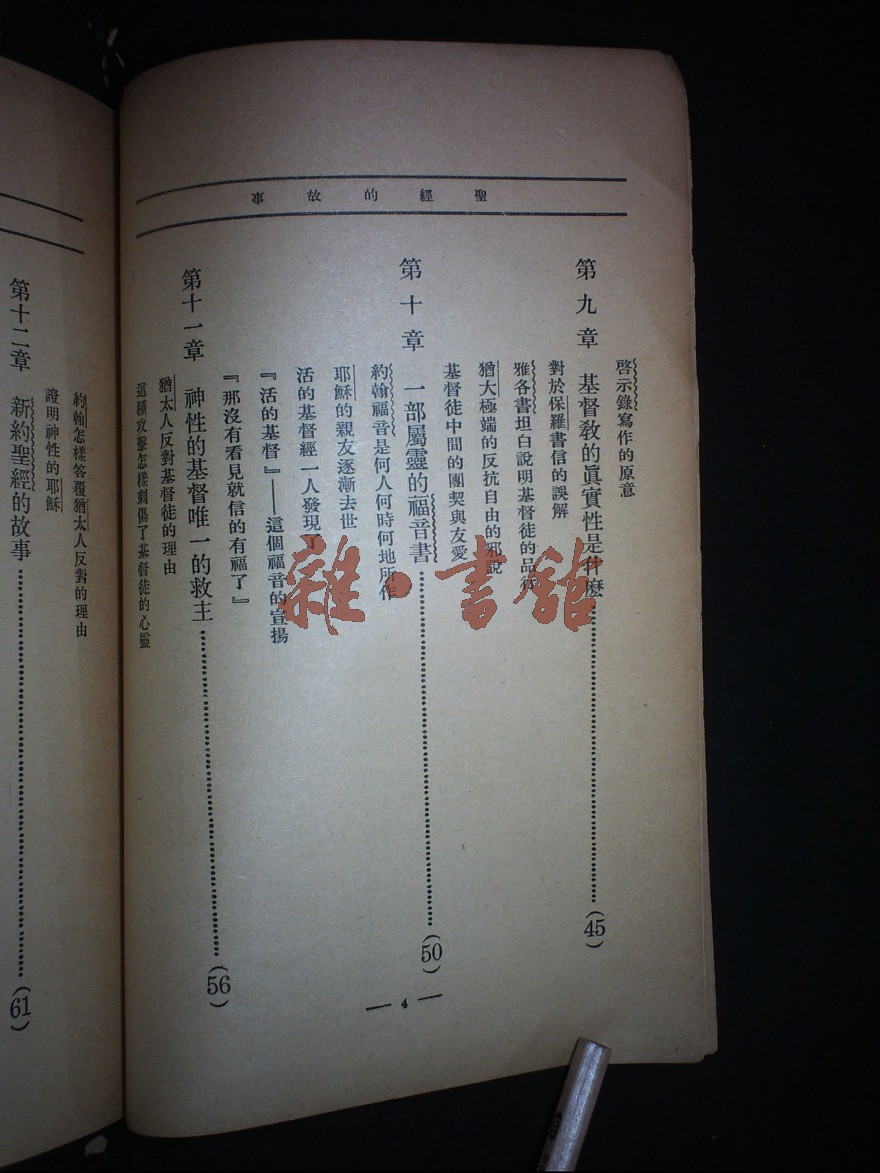 聖經的故事
啓示錄寫作的原意
第九章 基督敎的眞實性是什麽……(45)
對於保羅書信的誤解
雅各書坦白說明基督徒的品行
猶大極端的反抗自由的邪說
基督徒中間的團契與友愛
第十章 一部屬靈的福音書……(50)
約翰福音是何人何時何地所作
耶穌的親友逐漸去世
活的基督經一人發現了
『活的基督』——這個福音的宣揚
『那沒有看見就信的有福了』
第十一章 神性的基督唯一的救主……(56)
猶太人反對基督徒的理由
這種攻擊怎樣刺傷了基督徒的心靈
— 4 —
約翰怎樣答覆猶太人反對的理由
證明神性的耶穌
第十二章 新約聖經的故事……(61)
雜·書館